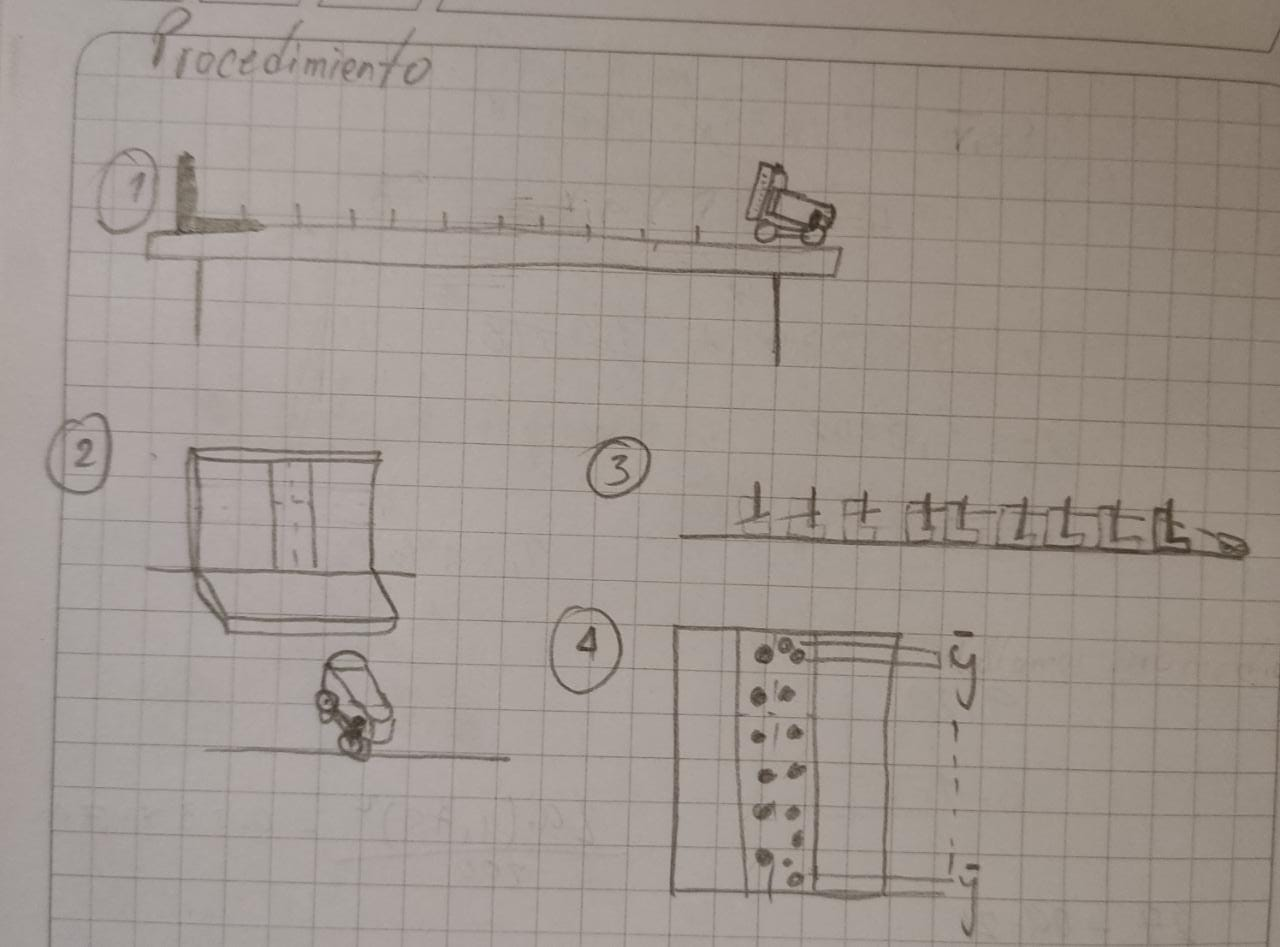 Procedimiento
1
2
3
4
ȳ
ȳ